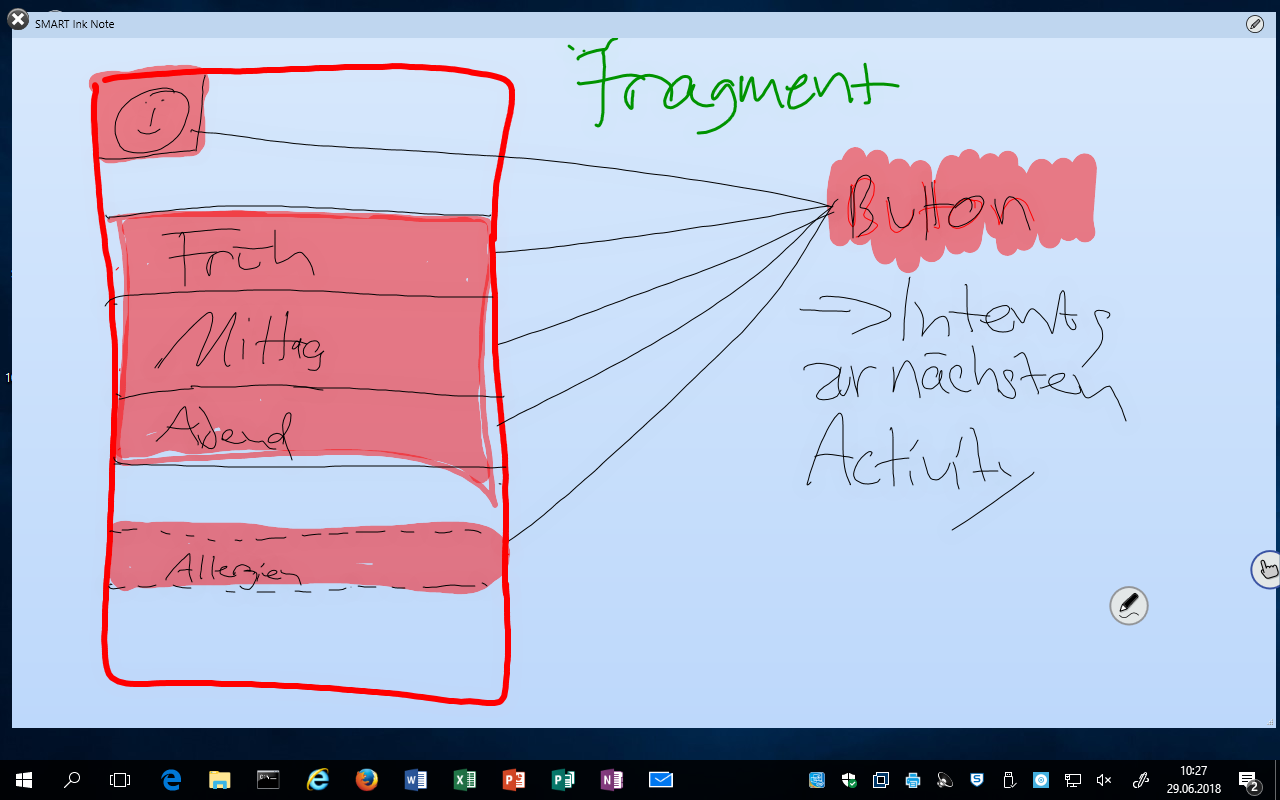 SMART Ink Note
Fragment
Früh
Mittag
Abend
Allergien
Button
→ Intents
zur nächsten
Activity
10:27
29.06.2018
2